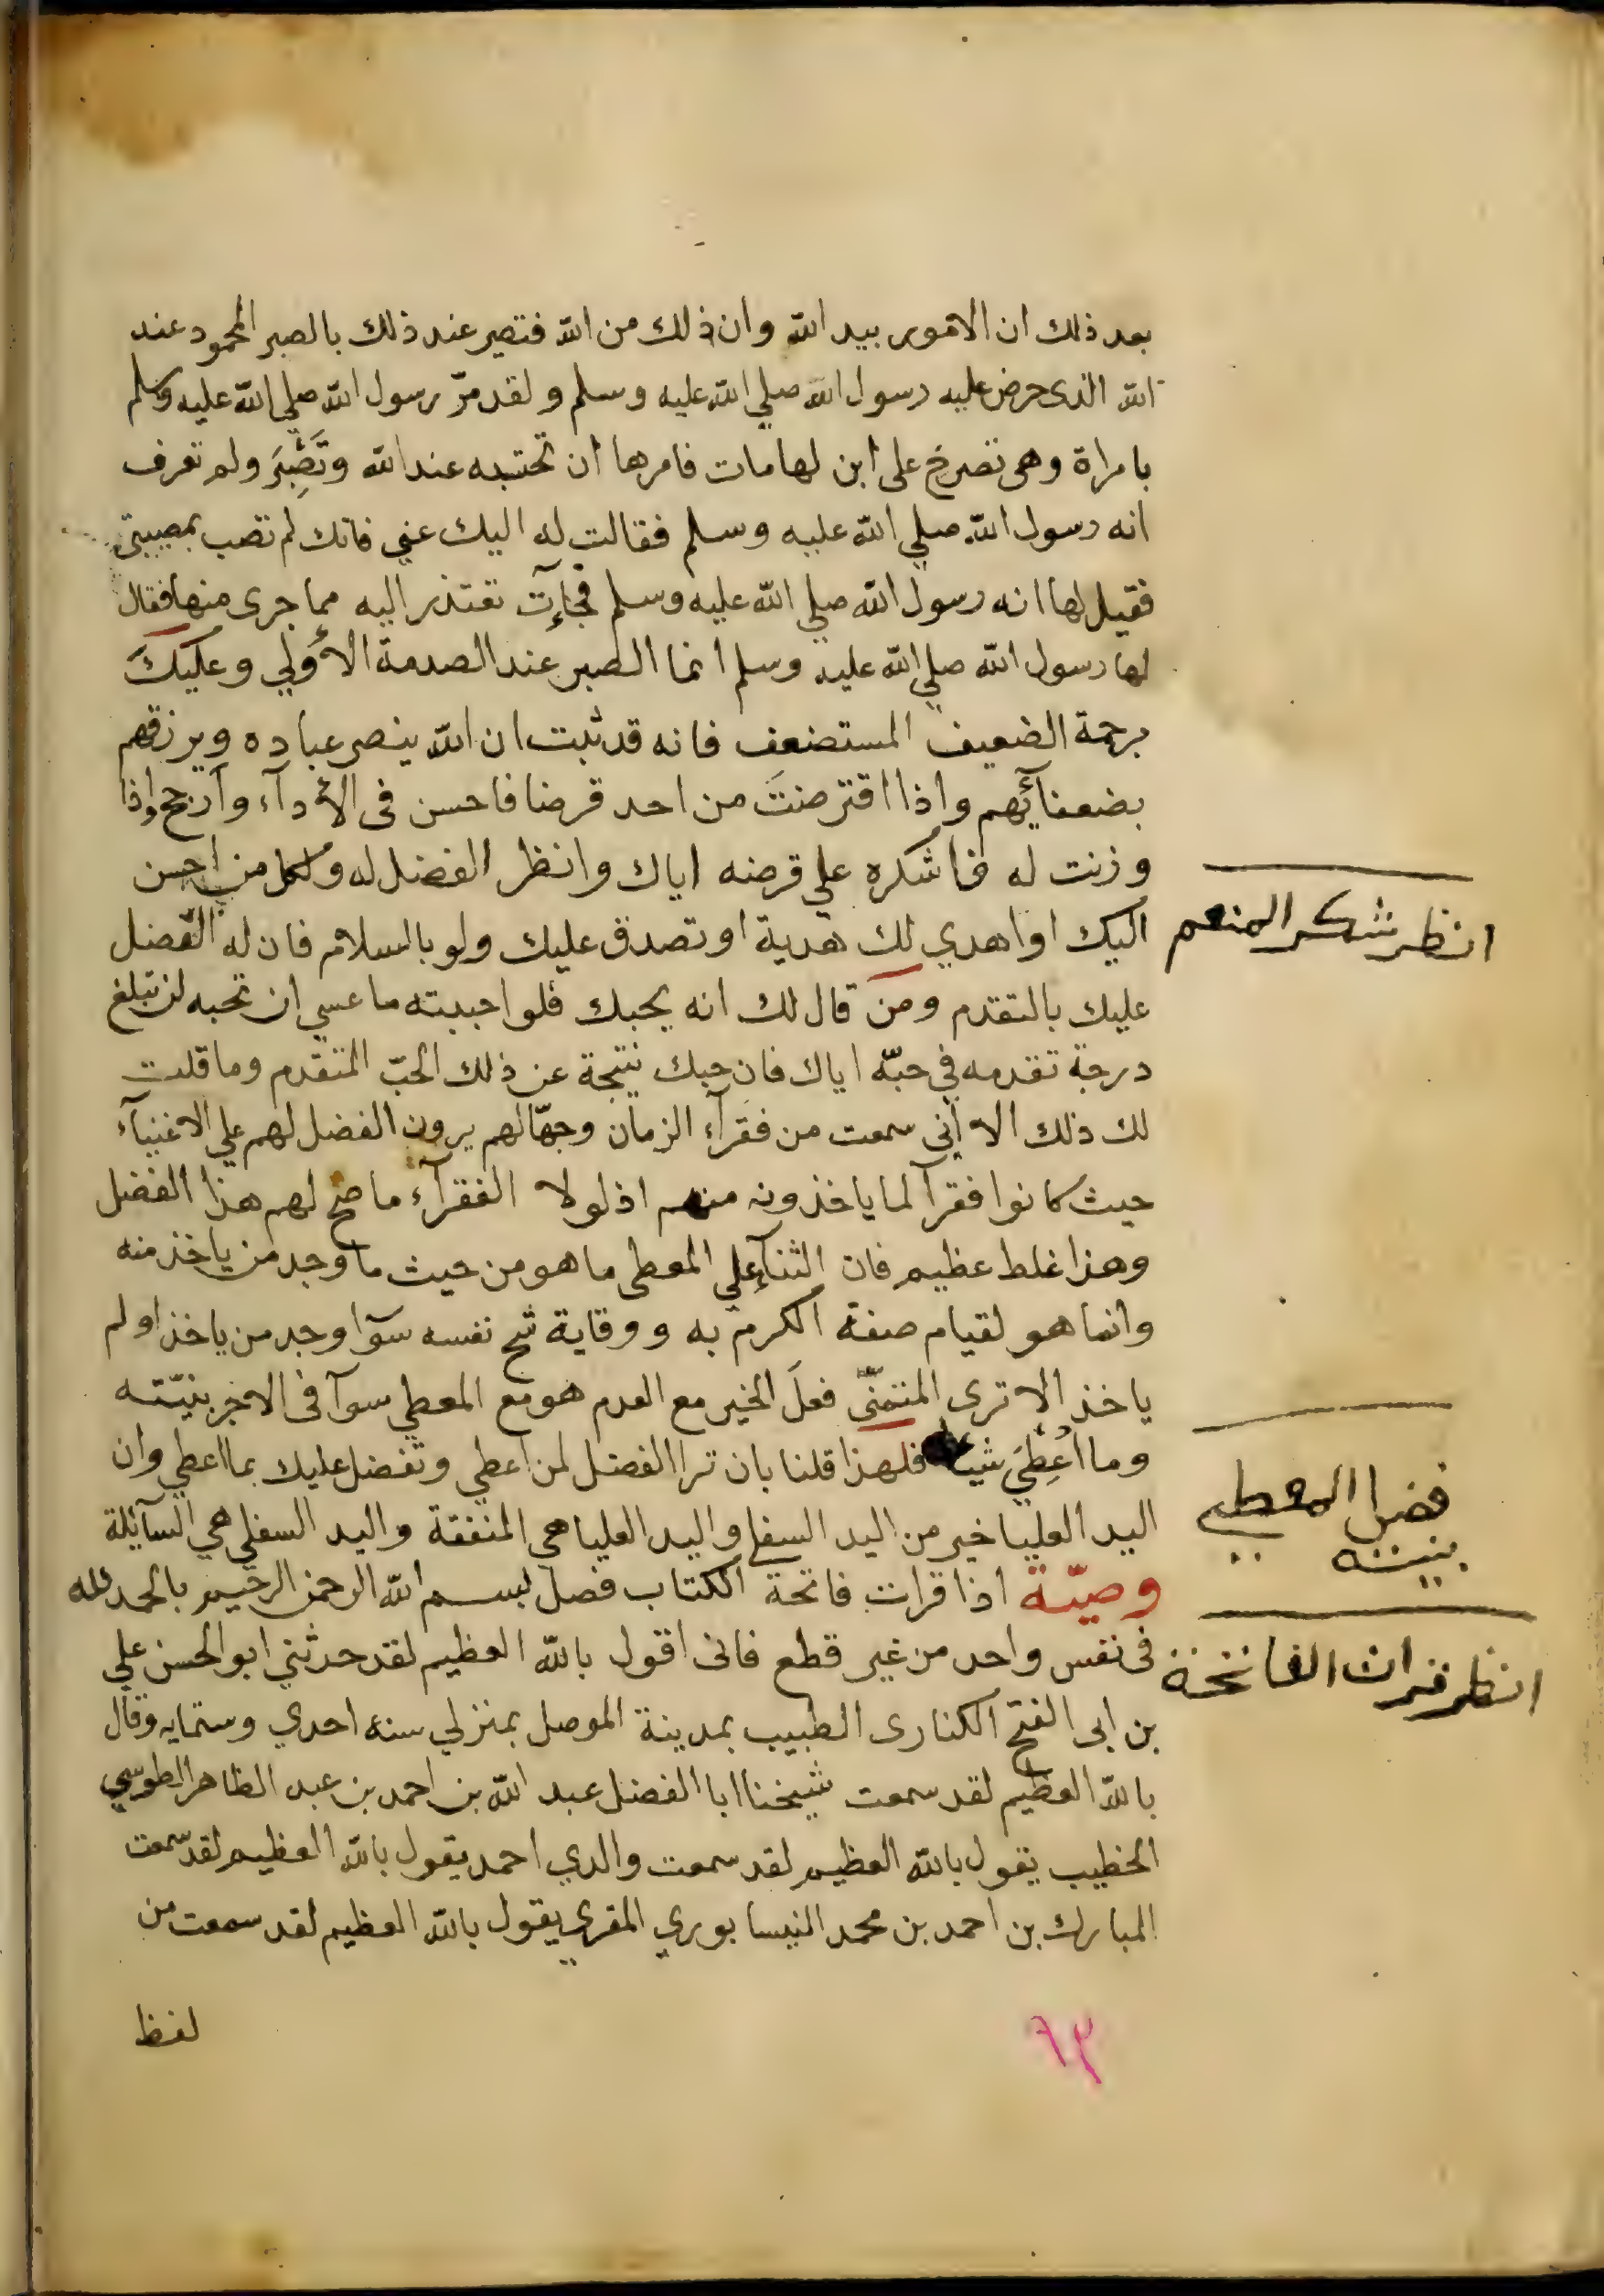 بعد ذلك ان الامور بيد الله وان ذلك من الله فتصبر عند ذلك بالصبر المحمود عند
الله الذى حرض عليه رسول الله صلي الله عليه وسلم ولقد مرّ رسول الله صلي الله عليه وسلم
بامراة وهى تصرخ على ابن لها مات فامرها ان تحتسبه عند الله وتَصْبِرَ ولم تعرف
انه رسول الله صلي الله عليه وسلم فقالت له اليك عني فانك لم تصب بمصيبتي
فقيل لها انه رسول الله صلي الله عليه وسلم فجاءت تعتذر اليه مما جرى منها فقال
لها رسول الله صلي الله عليه وسلم انما الصبر عند الصدمة الأولي وعليكَ
برحمة الضعيف المستضعف فانه قد ثبت ان الله ينصر عباده ويرزقهم
بضعفآئهم واذا اقترضتَ من احد قرضا فاحسن فى الأدآء وارجح واذا
وزنت له فاشكره علي قرضه اياك وانظر الفضل له ولكل من احسن
اليك او اهدي لك هدية او تصدق عليك ولو بالسلام فان له الفضل
عليك بالتقدم ومن قال لك انه يحبك فلو احببته ما عسي ان تحبه لن تبلغ
درجة تقدمه في حبّه اياك فان حبك نتيجة عن ذلك الحبّ المتقدم وما قلت
لك ذلك الا اني سمعت من فقرآء الزمان وجهّالهم يرون الفضل لهم علي الاغنيآء
حيث كانوا فقرآ لما ياخذونه منهم اذ لولا الفقرآء ما صح لهم هذا الفضل
وهذا غلط عظيم فان الثنآء علي المعطى ما هو من حيث ما وجد من ياخذ منه
وانما هو لقيام صفة الكرم به ووقاية شح نفسه سوآ وجد من ياخذ او لم
ياخذ الا ترى المتمنّي فعلَ الخير مع العدم هو مع المعطي سوآ فى الاجر بنيّته
وما اُعْطِيَ شيا فلهذا قلنا بان ترا الفضل لمن اعطي وتفضل عليك بما اعطي وان
اليد العليا خير من اليد السفلي واليد العليا هى المنفقة واليد السفلي هي السآئلة
وصيّة اذا قرات فاتحة الكتاب فصل بسم الله الرحمن الرحيم بالحمد لله
فى نفس واحد من غير قطع فانى اقول بالله العظيم لقد حدثني ابو الحسن علي
بن ابى الفتح الكنارى الطبيب بمدينة الموصل بمنزلي سنه احدي وستمايه وقال
بالله العظيم لقد سمعت شيخنا ابا الفضل عبد الله بن احمد بن عبد الظاهر الطوسي
الخطيب يقول بالله العظيم لقد سمعت والدي احمد يقول بالله العظيم لقد سمعت
المبارك بن احمد بن محمد النيسابوري المقري يقول بالله العظيم لقد سمعت من
لفظ
٦٣
انظر شكر المنعم
فضل المعطي
بنيته
انظر قرات الفاتحة